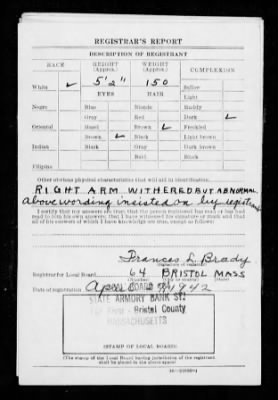 REGISTRAR'S REPORT
DESCRIPTION OF REGISTRANT
RACE
HEIGHT
(Approx.)
WEIGHT
(Approx.)
COMPLEXION
White ✓
5' 2"
150
Sallow
EYES
HAIR
Light
Negro
Blue
Blonde
Ruddy
Gray
Red
Dark ✓
Oriental
Hazel
Brown ✓
Freckled
Brown ✓
Black
Light brown
Indian
Black
Gray
Dark brown
Bald
Black
Filipino
Other obvious physical characteristics that will aid in identification
RIGHT ARM WITHERED BUT ABNORMAL
above wording insisted on by registrant
I certify that my answers are true; that the person registered has read or has had
read to him his own answers; that I have witnessed his signature or mark and that
all of his answers of which I have knowledge are true, except as follows:
Frances L. Brady
Registrar for Local Board 64 BRISTOL MASS
Date of registration April 1942
STATE ARMORY BANK ST.
Fall River - Bristol County
MASSACHUSETTS
(STAMP OF LOCAL BOARD)
(The stamp of the Local Board having jurisdiction of the registrant
shall be placed in the above space.)